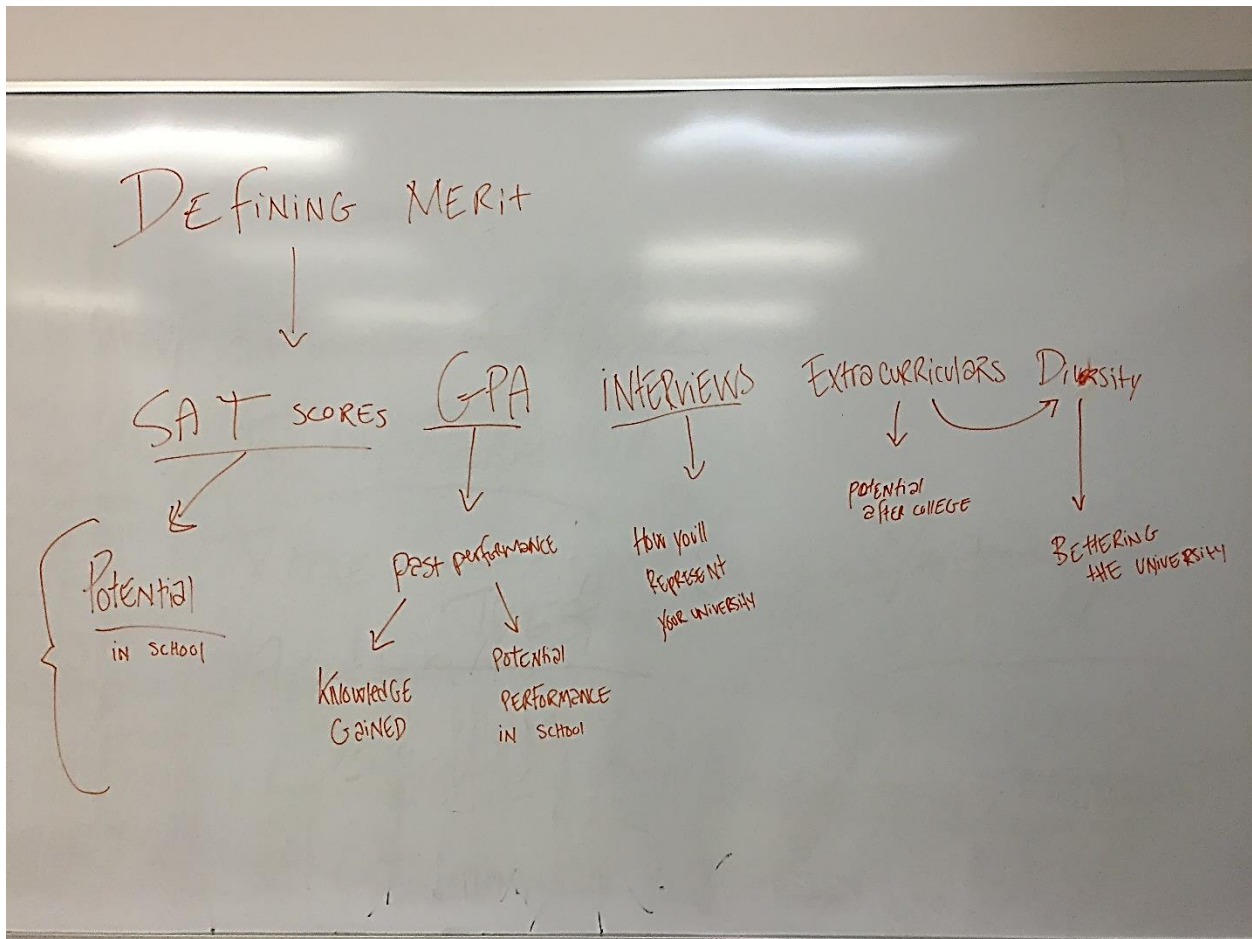 DEFINING MERIT
SAT SCORES
GPA
INTERVIEWS
Extracurriculars
Diversity
Potential
IN SCHOOL
Past performance
KNOWLEDGE
GAINED
POTENTIAL
PERFORMANCE
IN SCHOOL
How you'll
REPRESENT
your university
potential
after college
BETTERING
THE UNIVERSITY